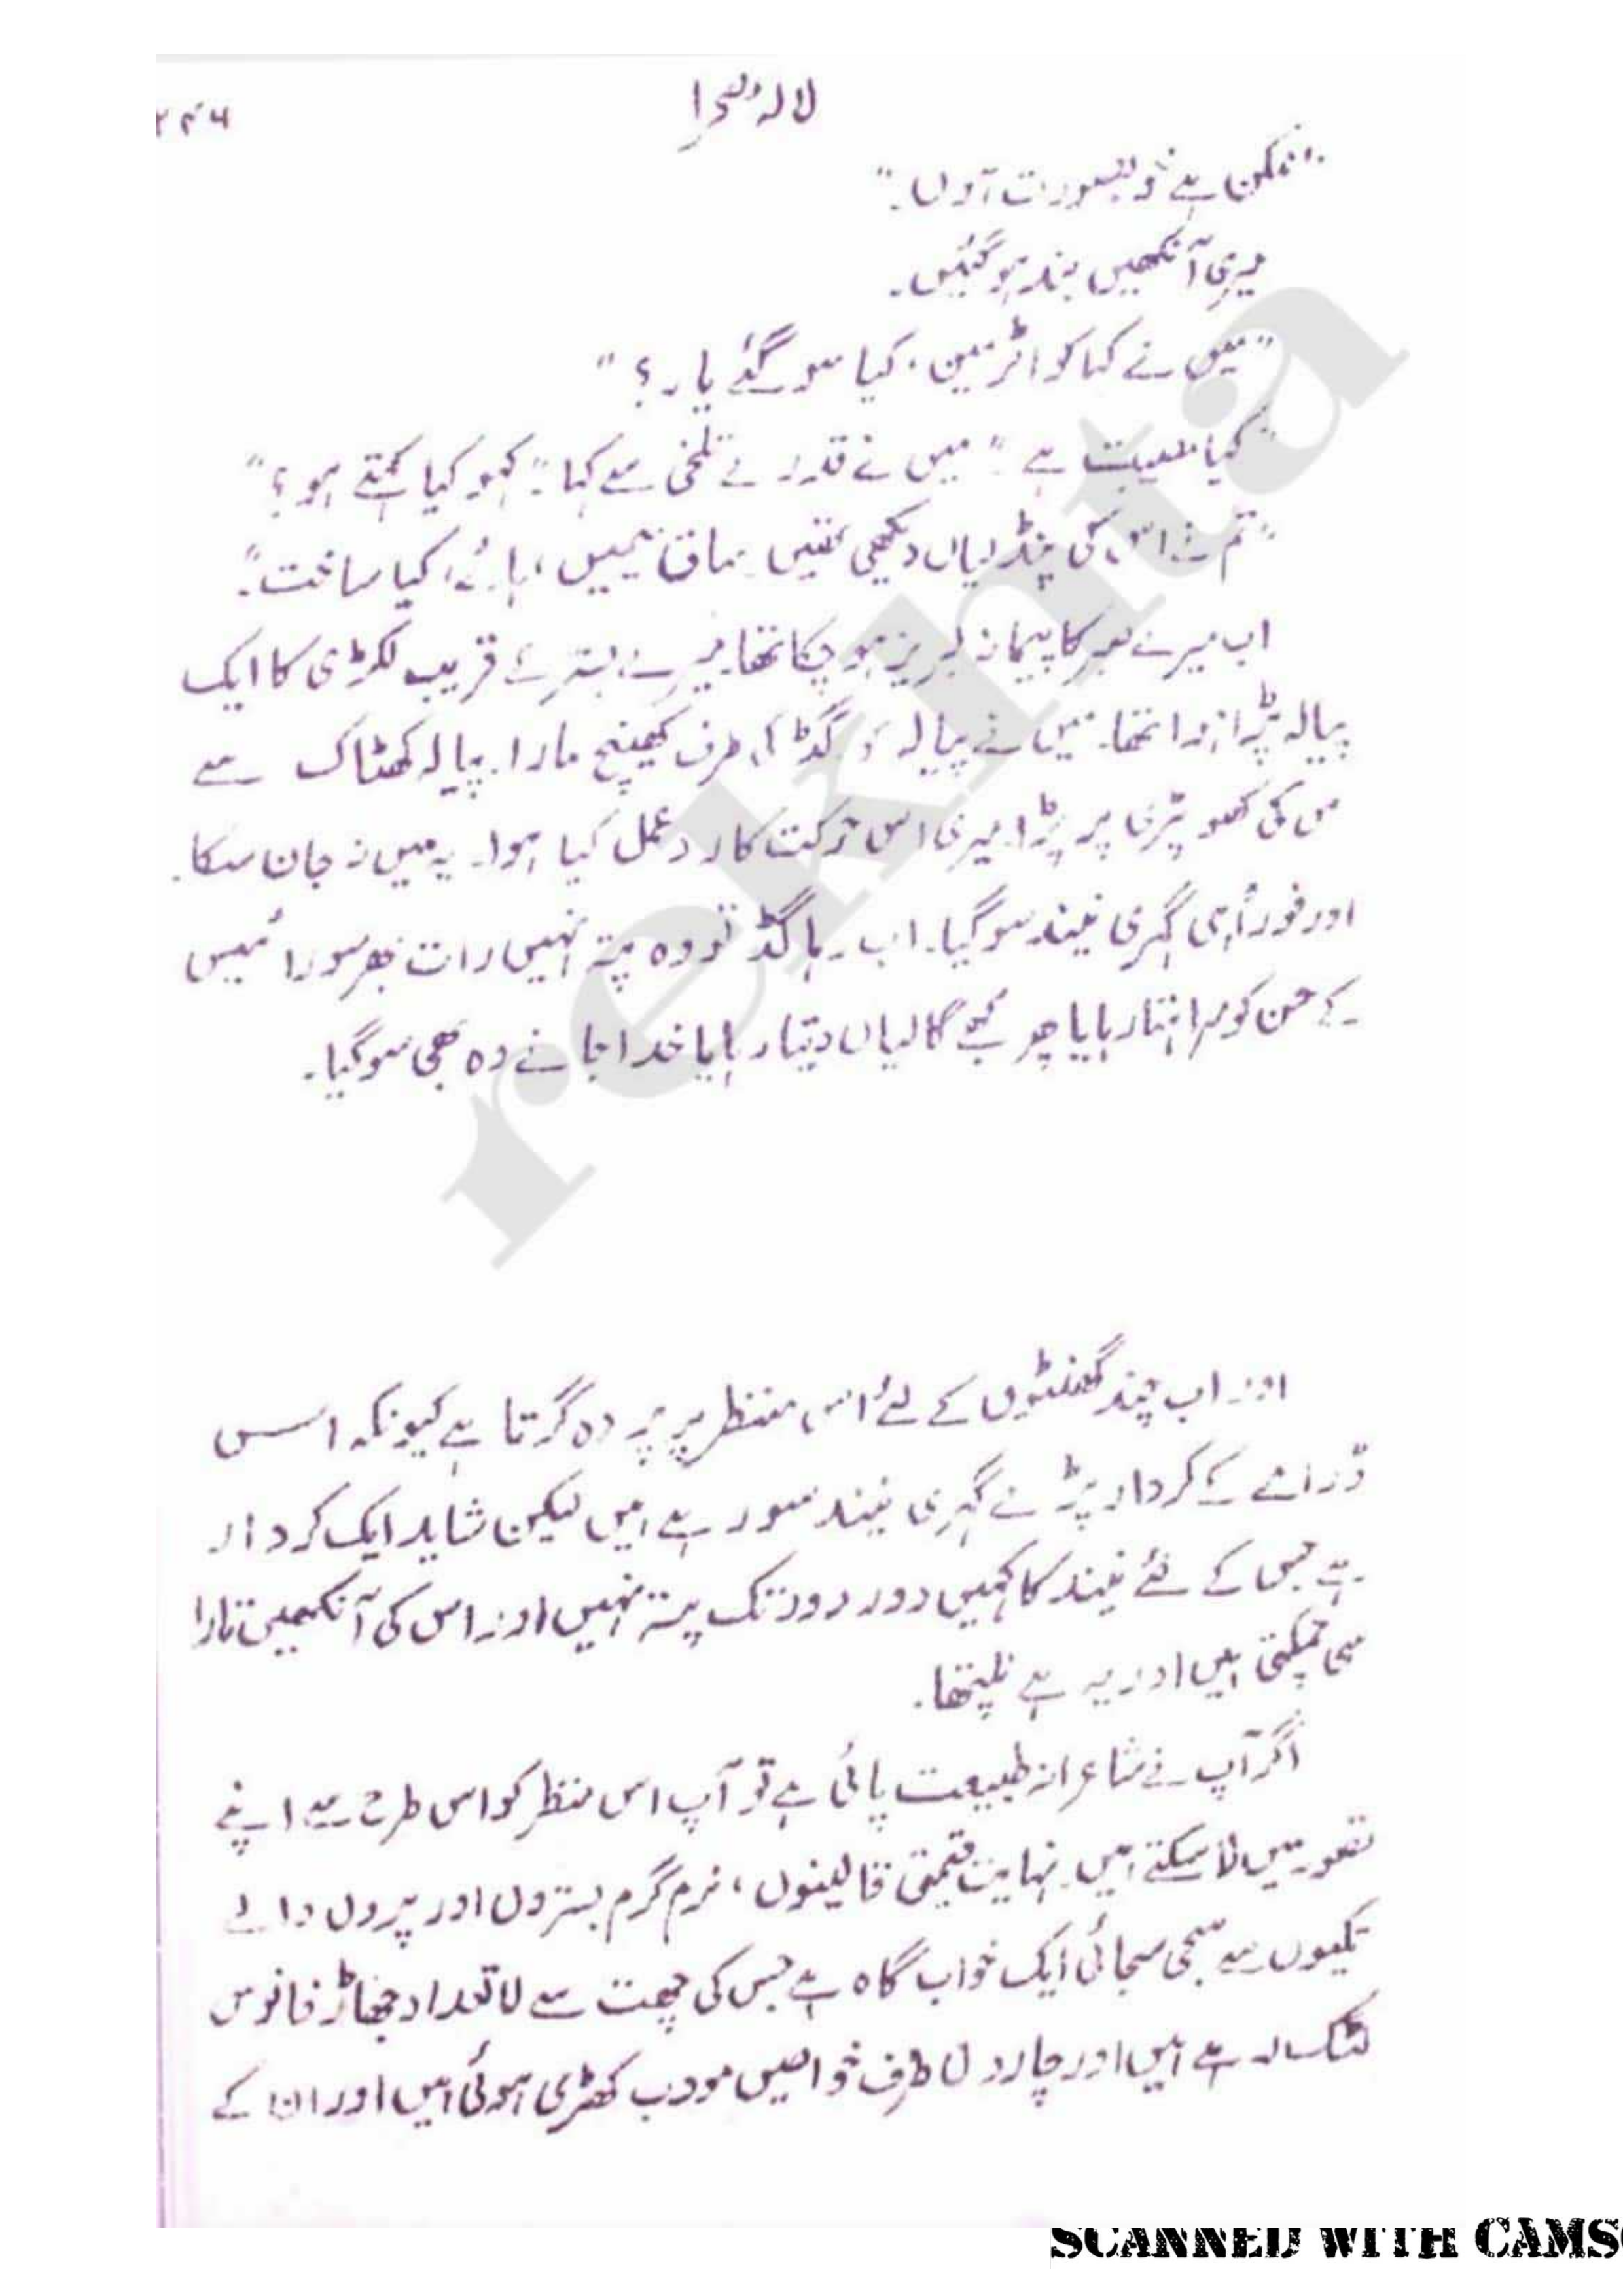 لالۂ صحرا
۲۴۶
"ممکن ہے خوبصورت ہوں۔"
میری آنکھیں بند ہو گئیں۔
"میں نے کہا کواٹرمین، کیا سو گئے یار؟"
"کیا مصیبت ہے" میں نے قدرے تلخی سے کہا "کہو کیا کہتے ہو؟"
"تم نے اس کی پنڈلیاں دیکھی تھیں ہائے، کیا ساخت"۔
اب میرے صبر کا پیمانہ لبریز ہو چکا تھا۔ میرے بستر کے قریب لکڑی کا ایک
پیالہ پڑا ہوا تھا۔ میں نے پیالہ گڈ کی طرف کھینچ مارا۔ پیالہ کھٹاک سے
س کی کھوپڑی پر پڑا۔ میری اس حرکت کا ردعمل کیا ہوا۔ یہ میں نہ جان سکا۔
اور فوراً ہی گہری نیند سو گیا۔ اب رہا گڈ تو وہ پتہ نہیں رات بھر سورائیس
کے حسن کو سراہتا رہا یا پھر مجھے گالیاں دیتا رہا یا خدا جانے وہ بھی سو گیا۔
اور اب چند گھنٹوں کے لئے اس منظر پر پردہ گرتا ہے کیونکہ اس
ڈرامے کے کردار پڑے گہری نیند سو رہے ہیں لیکن شاید ایک کردار
ہے جس کے لئے نیند کا کہیں دور دور تک پتہ نہیں اور اس کی آنکھیں تارا
سی چمکتی ہیں اور یہ ہے نلپتھا۔
اگر آپ نے شاعرانہ طبیعت پائی ہے تو آپ اس منظر کو اس طرح سے اپنے
تصور میں لا سکتے ہیں۔ نہایت قیمتی قالینوں، نرم گرم بستروں اور پروں والے
تکیوں سے سجی سجائی ایک خواب گاہ ہے جس کی چھت سے لاتعداد جھاڑ فانوس
لٹک رہے ہیں اور چاروں طرف خواصیں مودب کھڑی ہوئی ہیں اور ان کے
rekhta
SCANNED WITH CAMS